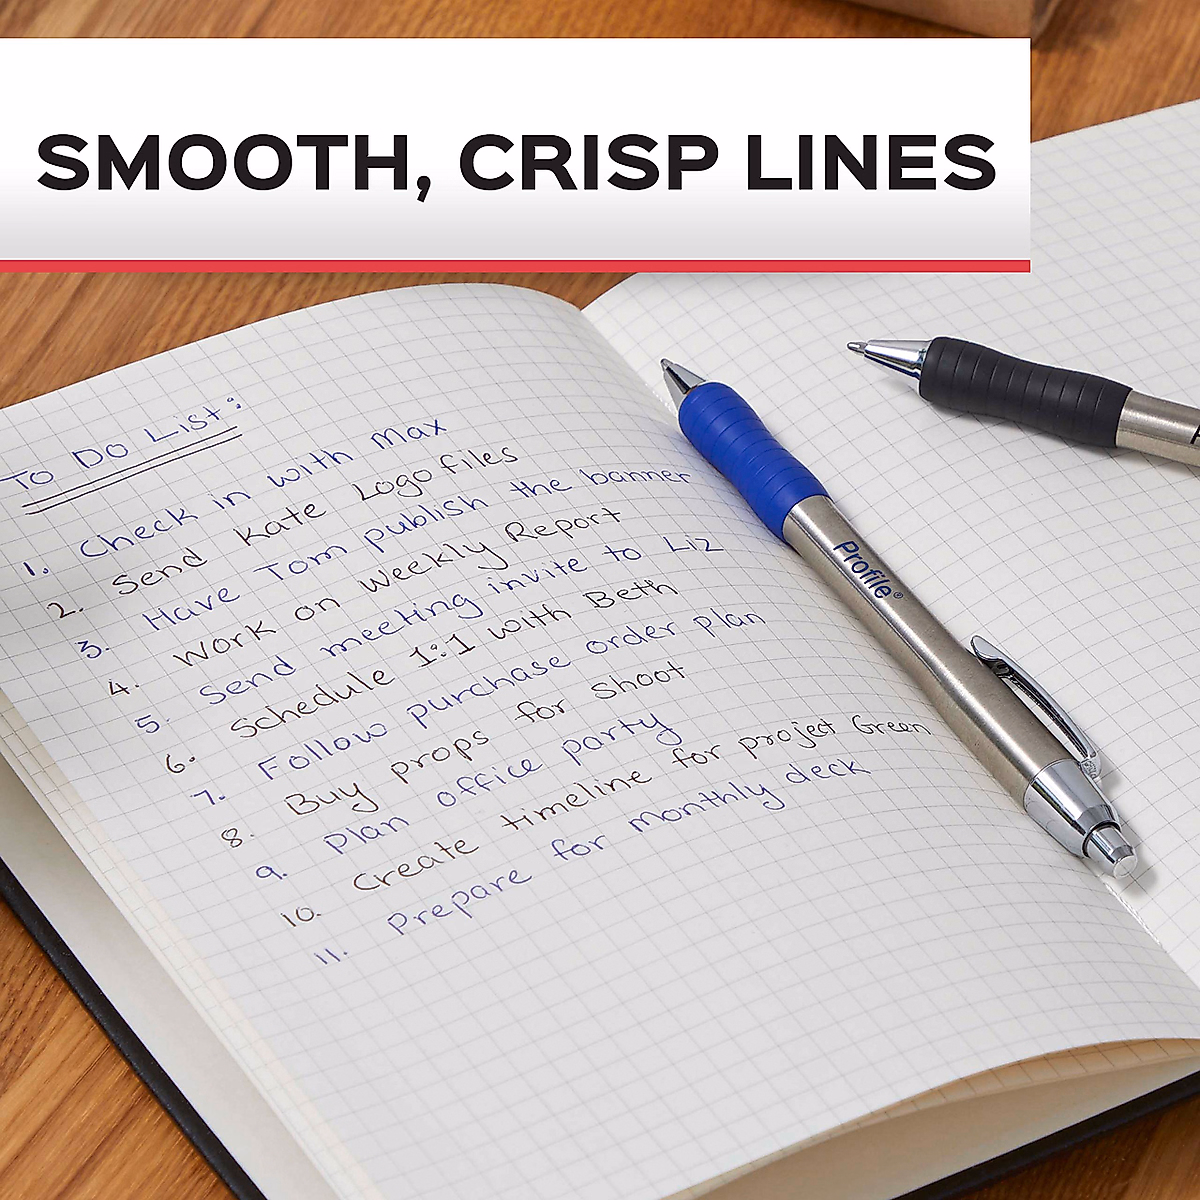 SMOOTH, CRISP LINES
TO DO List:
1. Check in with Max
2. Send Kate Logo files
3. Have Tom publish the banner
4. Work on Weekly Report
5. Send meeting invite to Liz
6. Schedule 1:1 with Beth
7. Follow purchase order plan
8. Buy props for shoot
9. Plan office party
10. Create timeline for project Green
11. Prepare for monthly deck
Profile®